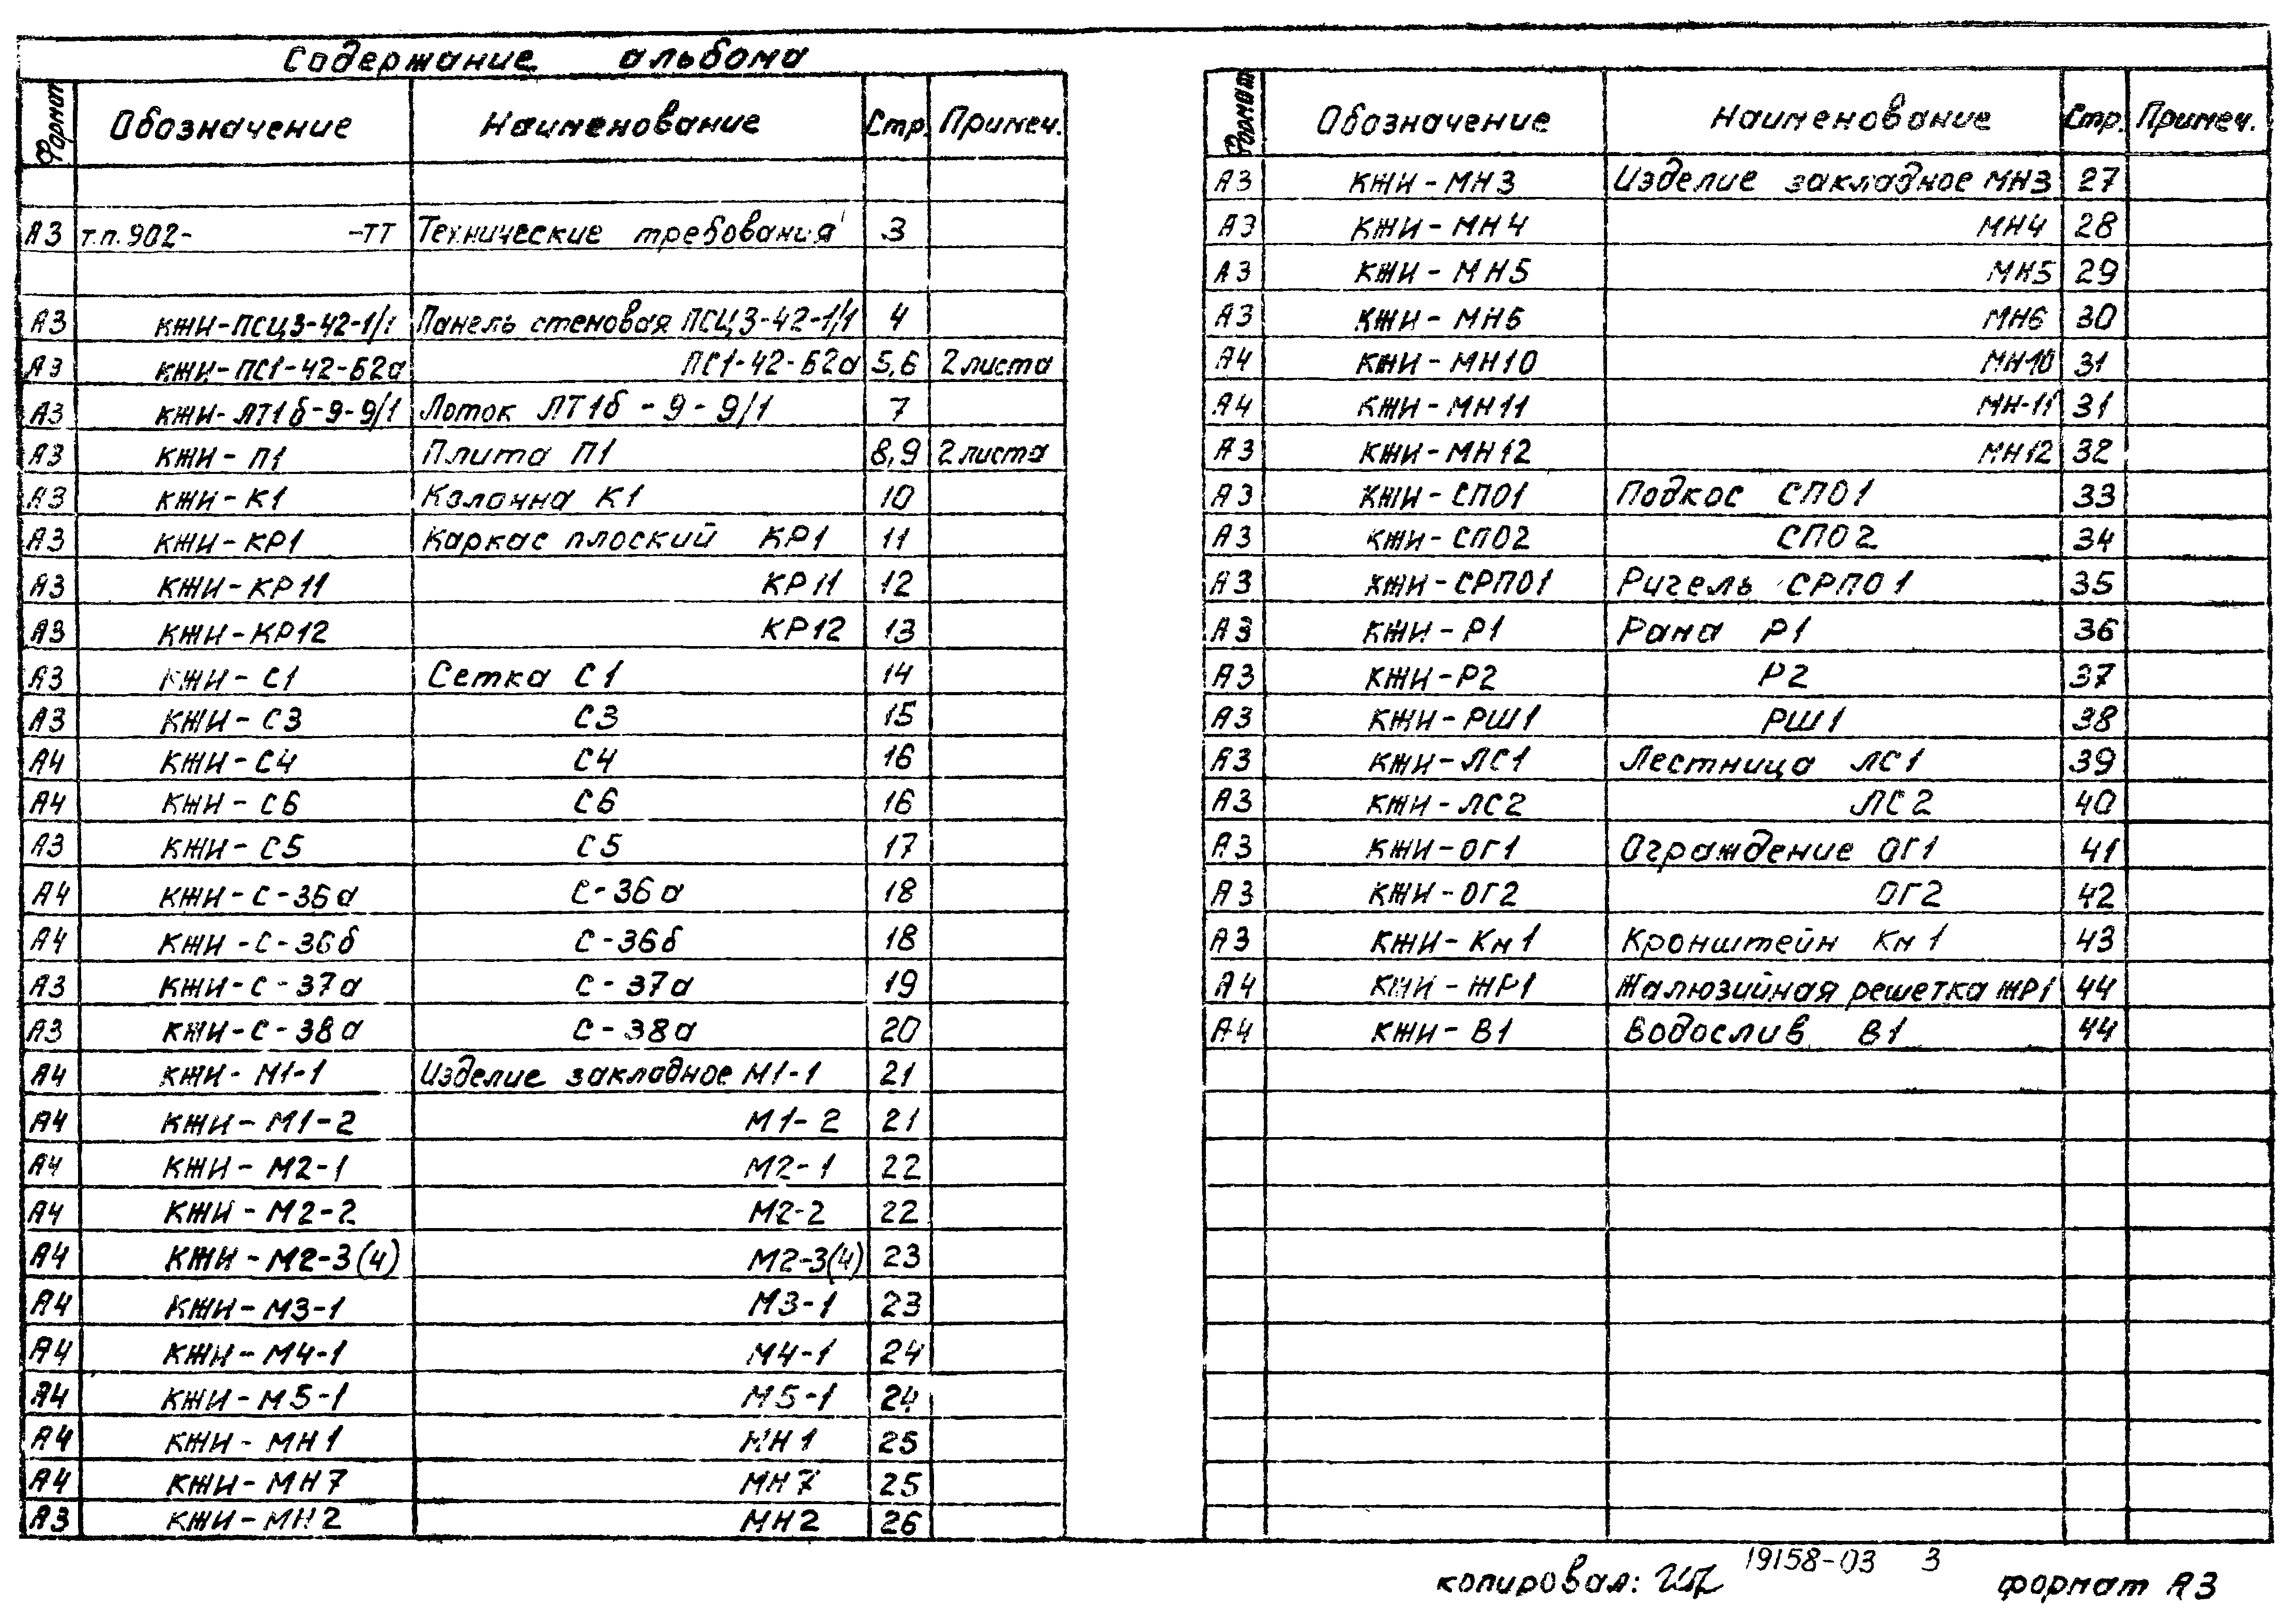 Содержание альбома
Формат Обозначение Наименование Стр. Примеч.
А3 т.п. 902- -ТТ Технические требования 3
А3 КЖИ-ПСЦ3-42-1/1 Панель стеновая ПСЦ3-42-1/1 4
А3 КЖИ-ПС1-42-Б2а ПС1-42-Б2а 5,6 2 листа
А3 КЖИ-ЛТ1б-9-9/1 Лоток ЛТ1б-9-9/1 7
А3 КЖИ-П1 Плита П1 8,9 2 листа
А3 КЖИ-К1 Колонна К1 10
А3 КЖИ-КР1 Каркас плоский КР1 11
А3 КЖИ-КР11 КР11 12
А3 КЖИ-КР12 КР12 13
А3 КЖИ-С1 Сетка С1 14
А3 КЖИ-С3 С3 15
А4 КЖИ-С4 С4 16
А4 КЖИ-С6 С6 16
А3 КЖИ-С5 С5 17
А4 КЖИ-С-36а С-36а 18
А4 КЖИ-С-36б С-36б 18
А3 КЖИ-С-37а С-37а 19
А3 КЖИ-С-38а С-38а 20
А4 КЖИ-М1-1 Изделие закладное М1-1 21
А4 КЖИ-М1-2 М1-2 21
А4 КЖИ-М2-1 М2-1 22
А4 КЖИ-М2-2 М2-2 22
А4 КЖИ-М2-3(4) М2-3(4) 23
А4 КЖИ-М3-1 М3-1 23
А4 КЖИ-М4-1 М4-1 24
А4 КЖИ-М5-1 М5-1 24
А4 КЖИ-МН1 МН1 25
А4 КЖИ-МН7 МН7 25
А3 КЖИ-МН2 МН2 26
Формат Обозначение Наименование Стр. Примеч.
А3 КЖИ-МН3 Изделие закладное МН3 27
А3 КЖИ-МН4 МН4 28
А3 КЖИ-МН5 МН5 29
А3 КЖИ-МН6 МН6 30
А4 КЖИ-МН10 МН10 31
А4 КЖИ-МН11 МН-11 31
А3 КЖИ-МН12 МН12 32
А3 КЖИ-СПО1 Подкос СПО1 33
А3 КЖИ-СПО2 СПО2 34
А3 КЖИ-СРПО1 Ригель СРПО1 35
А3 КЖИ-Р1 Рама Р1 36
А3 КЖИ-Р2 Р2 37
А3 КЖИ-РШ1 РШ1 38
А3 КЖИ-ЛС1 Лестница ЛС1 39
А3 КЖИ-ЛС2 ЛС2 40
А3 КЖИ-ОГ1 Ограждение ОГ1 41
А3 КЖИ-ОГ2 ОГ2 42
А3 КЖИ-Км1 Кронштейн Км1 43
А4 КЖИ-ЖР1 Жалюзийная решетка ЖР1 44
А4 КЖИ-В1 Водослив В1 44
копировал: 19158-03 3 формат А3